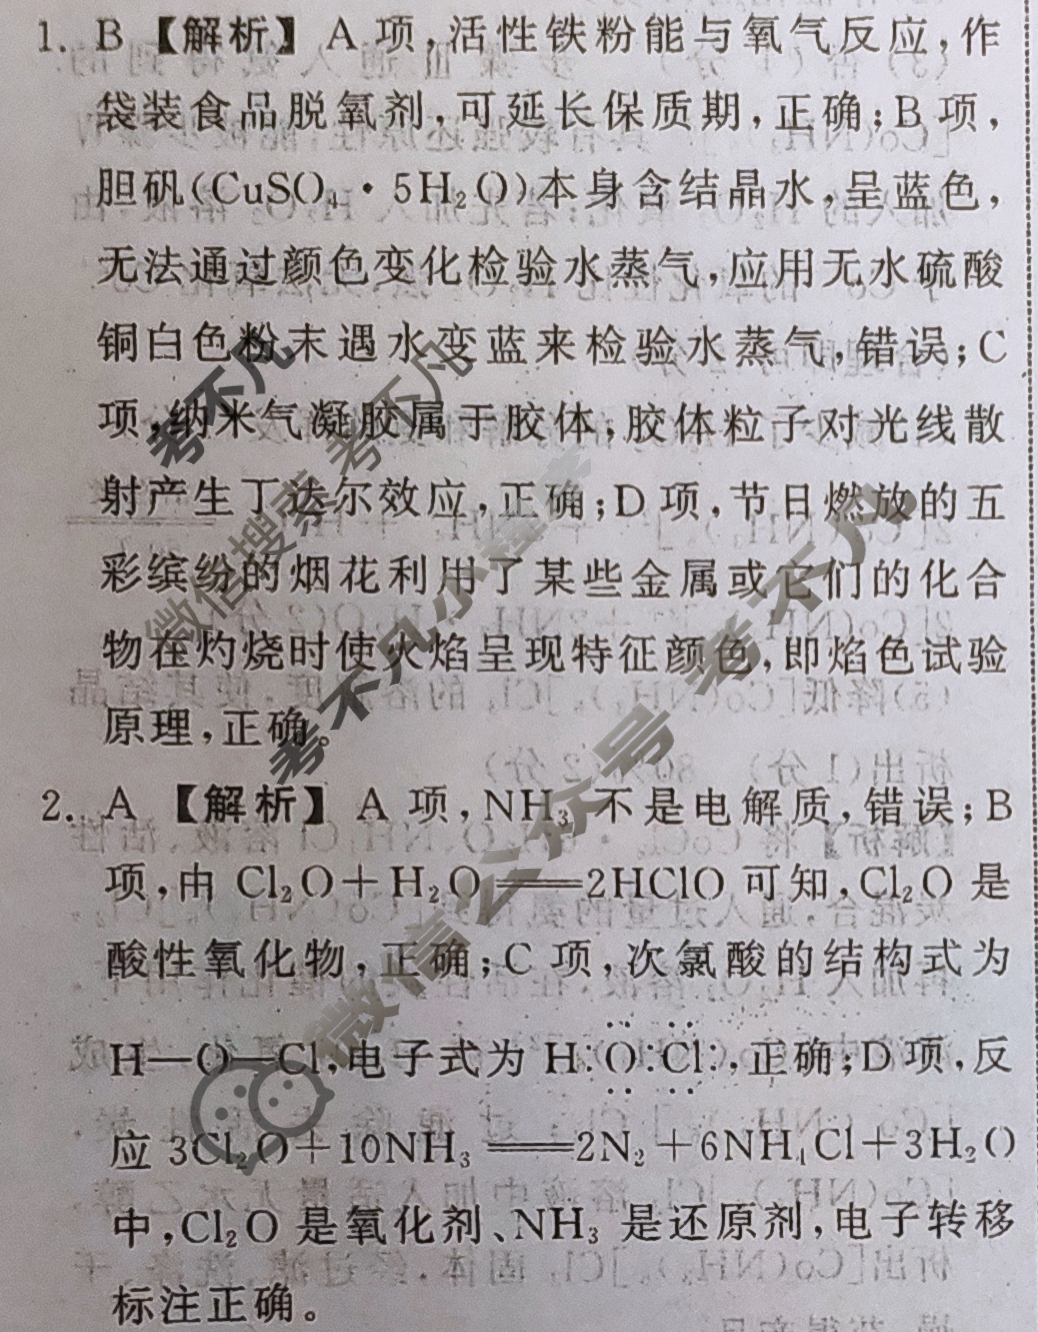 1. B 【解析】A 项,活性铁粉能与氧气反应,作
袋装食品脱氧剂,可延长保质期,正确;B 项,
胆矾(CuSO₄·5H₂O)本身含结晶水,呈蓝色,
无法通过颜色变化检验水蒸气,应用无水硫酸
铜白色粉末遇水变蓝来检验水蒸气,错误;C
项,纳米气凝胶属于胶体,胶体粒子对光线散
射产生丁达尔效应,正确;D 项,节日燃放的五
彩缤纷的烟花利用了某些金属或它们的化合
物在灼烧时使火焰呈现特征颜色,即焰色试验
原理,正确。
2. A 【解析】A 项,NH₃ 不是电解质,错误;B
项,由 Cl₂O+H₂O══2HClO 可知,Cl₂O 是
酸性氧化物,正确;C 项,次氯酸的结构式为
H—O—Cl,电子式为 H:Ö:Cl:,正确;D 项,反
应 3Cl₂O+10NH₃══2N₂+6NH₄Cl+3H₂O
中,Cl₂O 是氧化剂、NH₃ 是还原剂,电子转移
标注正确。
考不凡
微信搜索考不凡
考不凡小程序
微信公众号 考不凡